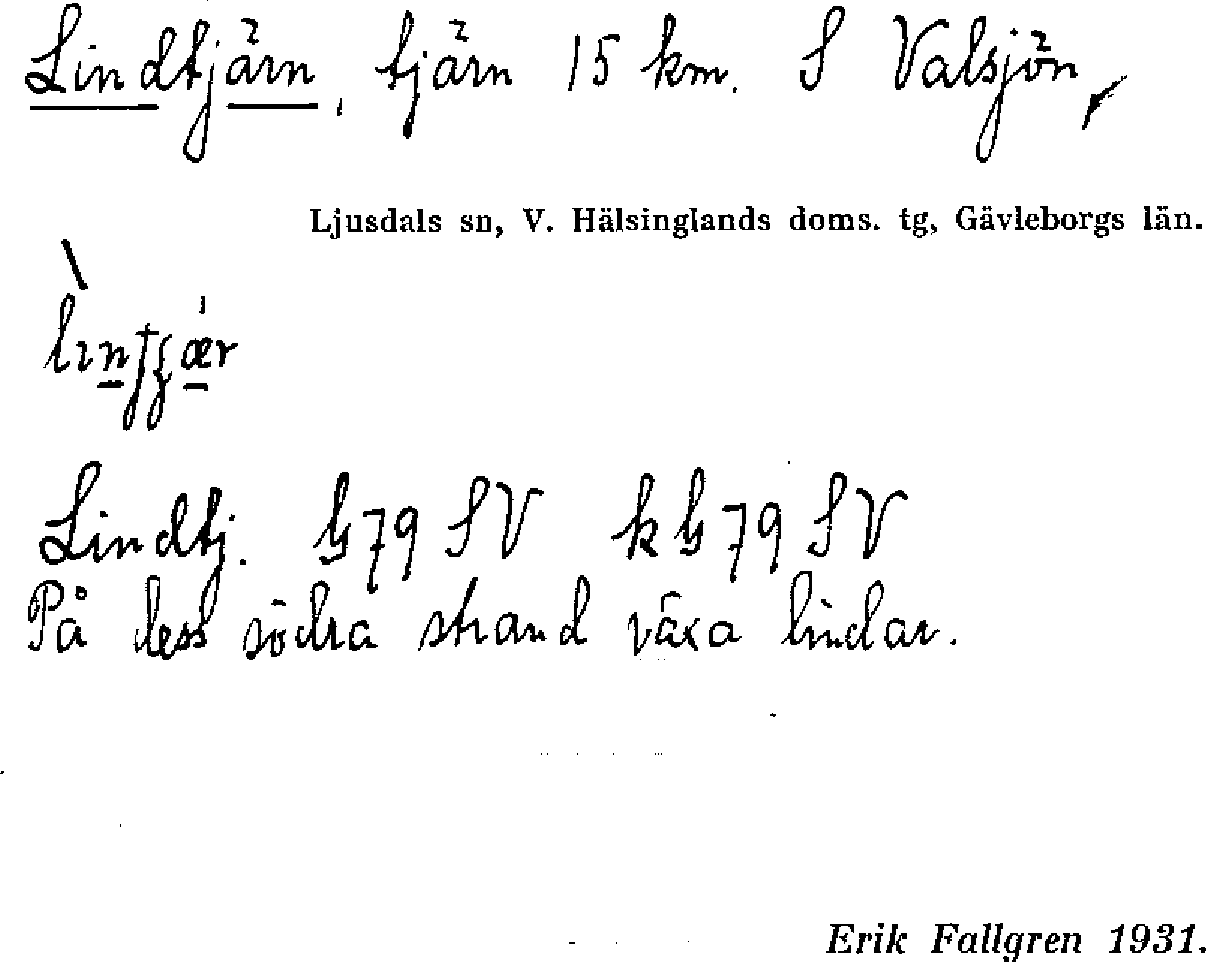 Lindtjärn, tjärn 15 km. S Valsjön,
Ljusdals sn, V. Hälsinglands doms. tg, Gävleborgs län.
Lindtj. G 79 SV k G 79 SV
På dess södra strand växa lindar.
Erik Fallgren 1931.